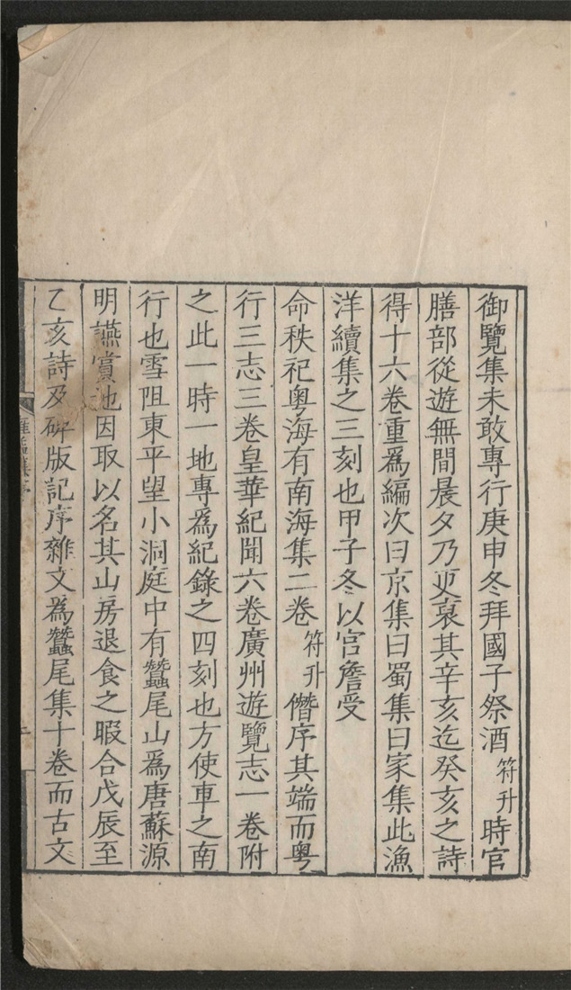 御覽集未敢專行庚申冬拜國子祭酒符升時官
膳部從遊無間晨夕乃更裒其辛亥迄癸亥之詩
得十六卷重爲編次曰京集曰蜀集曰家集此漁
洋續集之三刻也甲子冬以官詹受
命秩祀粤海有南海集二卷符升僭序其端而粤
行三志三卷皇華紀聞六卷廣州遊覽志一卷附
之此一時一地專爲紀錄之四刻也方使車之南
行也雪阻東平望小洞庭中有蠶尾山爲唐蘇源
明讌賞地因取以名其山房退食之暇合戊辰至
乙亥詩及碑版記序雜文爲蠶尾集十卷而古文